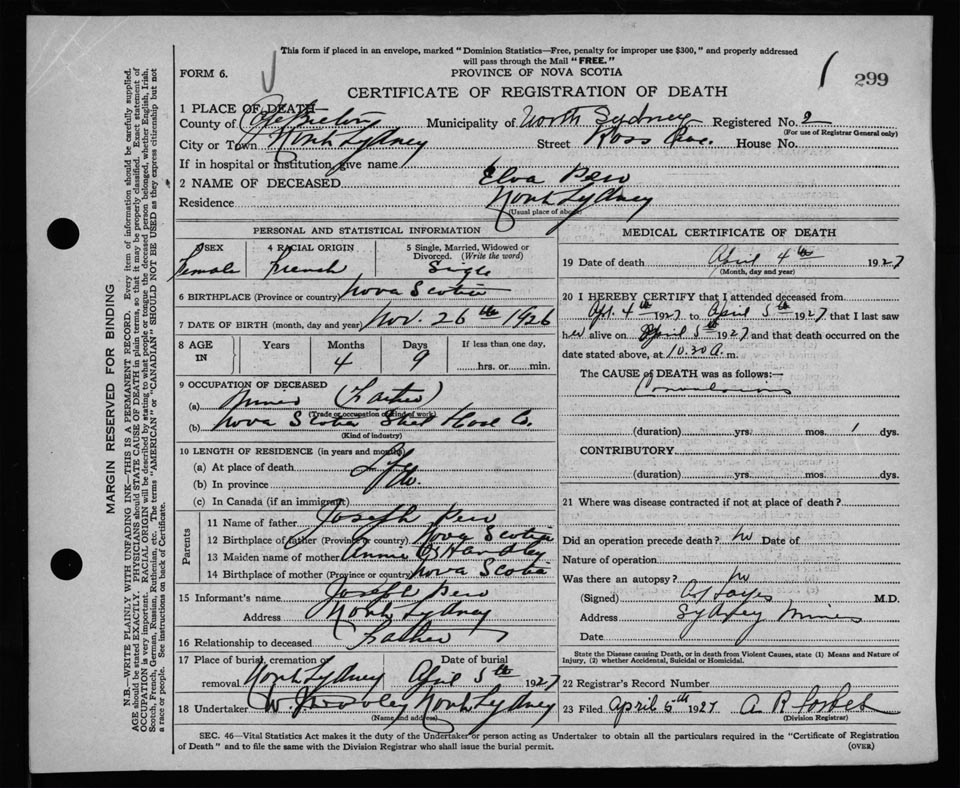 This form if placed in an envelope, marked "Dominion Statistics—Free, penalty for improper use $300," and properly addressed
will pass through the Mail "FREE."
FORM 6.
PROVINCE OF NOVA SCOTIA
299
CERTIFICATE OF REGISTRATION OF DEATH
1 PLACE OF DEATH—
County of Cape Breton Municipality of North Sydney Registered No. 2
(For use of Registrar General only)
City or Town North Sydney Street Ross Ave. House No.
If in hospital or institution, give name
2 NAME OF DECEASED Elva Pero
Residence North Sydney
(Usual place of abode)
PERSONAL AND STATISTICAL INFORMATION
3 SEX Female
4 RACIAL ORIGIN French
5 Single, Married, Widowed or Divorced. (Write the word)
6 BIRTHPLACE (Province or country) Nova Scotia
7 DATE OF BIRTH (month, day and year) Nov. 26th 1926
8 AGE IN Years Months 4 Days 9 If less than one day, hrs. or min.
9 OCCUPATION OF DECEASED
(a) Miner (Father)
(Trade or occupation or kind of work)
(b) Nova Scotia Steel & Coal Co.
(Kind of industry)
10 LENGTH OF RESIDENCE (in years and months)
(a) At place of death Life
(b) In province
(c) In Canada (if an immigrant)
Parents
11 Name of father Joseph Pero
12 Birthplace of father (Province or country) Nova Scotia
13 Maiden name of mother Annie O'Handley
14 Birthplace of mother (Province or country) Nova Scotia
15 Informant's name Joseph Pero
Address North Sydney
16 Relationship to deceased Father
17 Place of burial, cremation or removal North Sydney Date of burial April 5th 1927
18 Undertaker North Sydney
(Name and address)
MEDICAL CERTIFICATE OF DEATH
19 Date of death April 4th 1927
(Month, day and year)
20 I HEREBY CERTIFY that I attended deceased from
Apl. 4th 1927 to April 5th 1927 that I last saw
her alive on April 5th 1927 and that death occurred on the
date stated above, at 10.30 A. m.
The CAUSE OF DEATH was as follows:—
Convulsions
(duration) yrs. mos. 1 dys.
CONTRIBUTORY
(duration) yrs. mos. dys.
21 Where was disease contracted if not at place of death?
Did an operation precede death? No Date of
Nature of operation
Was there an autopsy? No
(Signed) M.D.
Address Sydney Mines
Date
State the Disease causing Death, or in death from Violent Causes, state (1) Means and Nature of
Injury, (2) whether Accidental, Suicidal or Homicidal.
22 Registrar's Record Number
23 Filed April 6th 1927 A R Forbes
(Division Registrar)
SEC. 46—Vital Statistics Act makes it the duty of the Undertaker or person acting as Undertaker to obtain all the particulars required in the "Certificate of Registration
of Death" and to file the same with the Division Registrar who shall issue the burial permit.
(OVER)
MARGIN RESERVED FOR BINDING
N.B.—WRITE PLAINLY WITH UNFADING INK—THIS IS A PERMANENT RECORD. Every item of information should be carefully supplied.
AGE should be stated EXACTLY. PHYSICIANS should STATE CAUSE OF DEATH in plain terms, so that it may be properly classified. Exact statement of
OCCUPATION is very important. RACIAL ORIGIN will be described by stating to what people or tongue the deceased person belonged, whether English, Irish,
Scotch, French, German, Russian, Ruthenian, etc. The terms "AMERICAN" or "CANADIAN" SHOULD NOT BE USED as they express citizenship but not
a race or people. See instructions on back of Certificate.